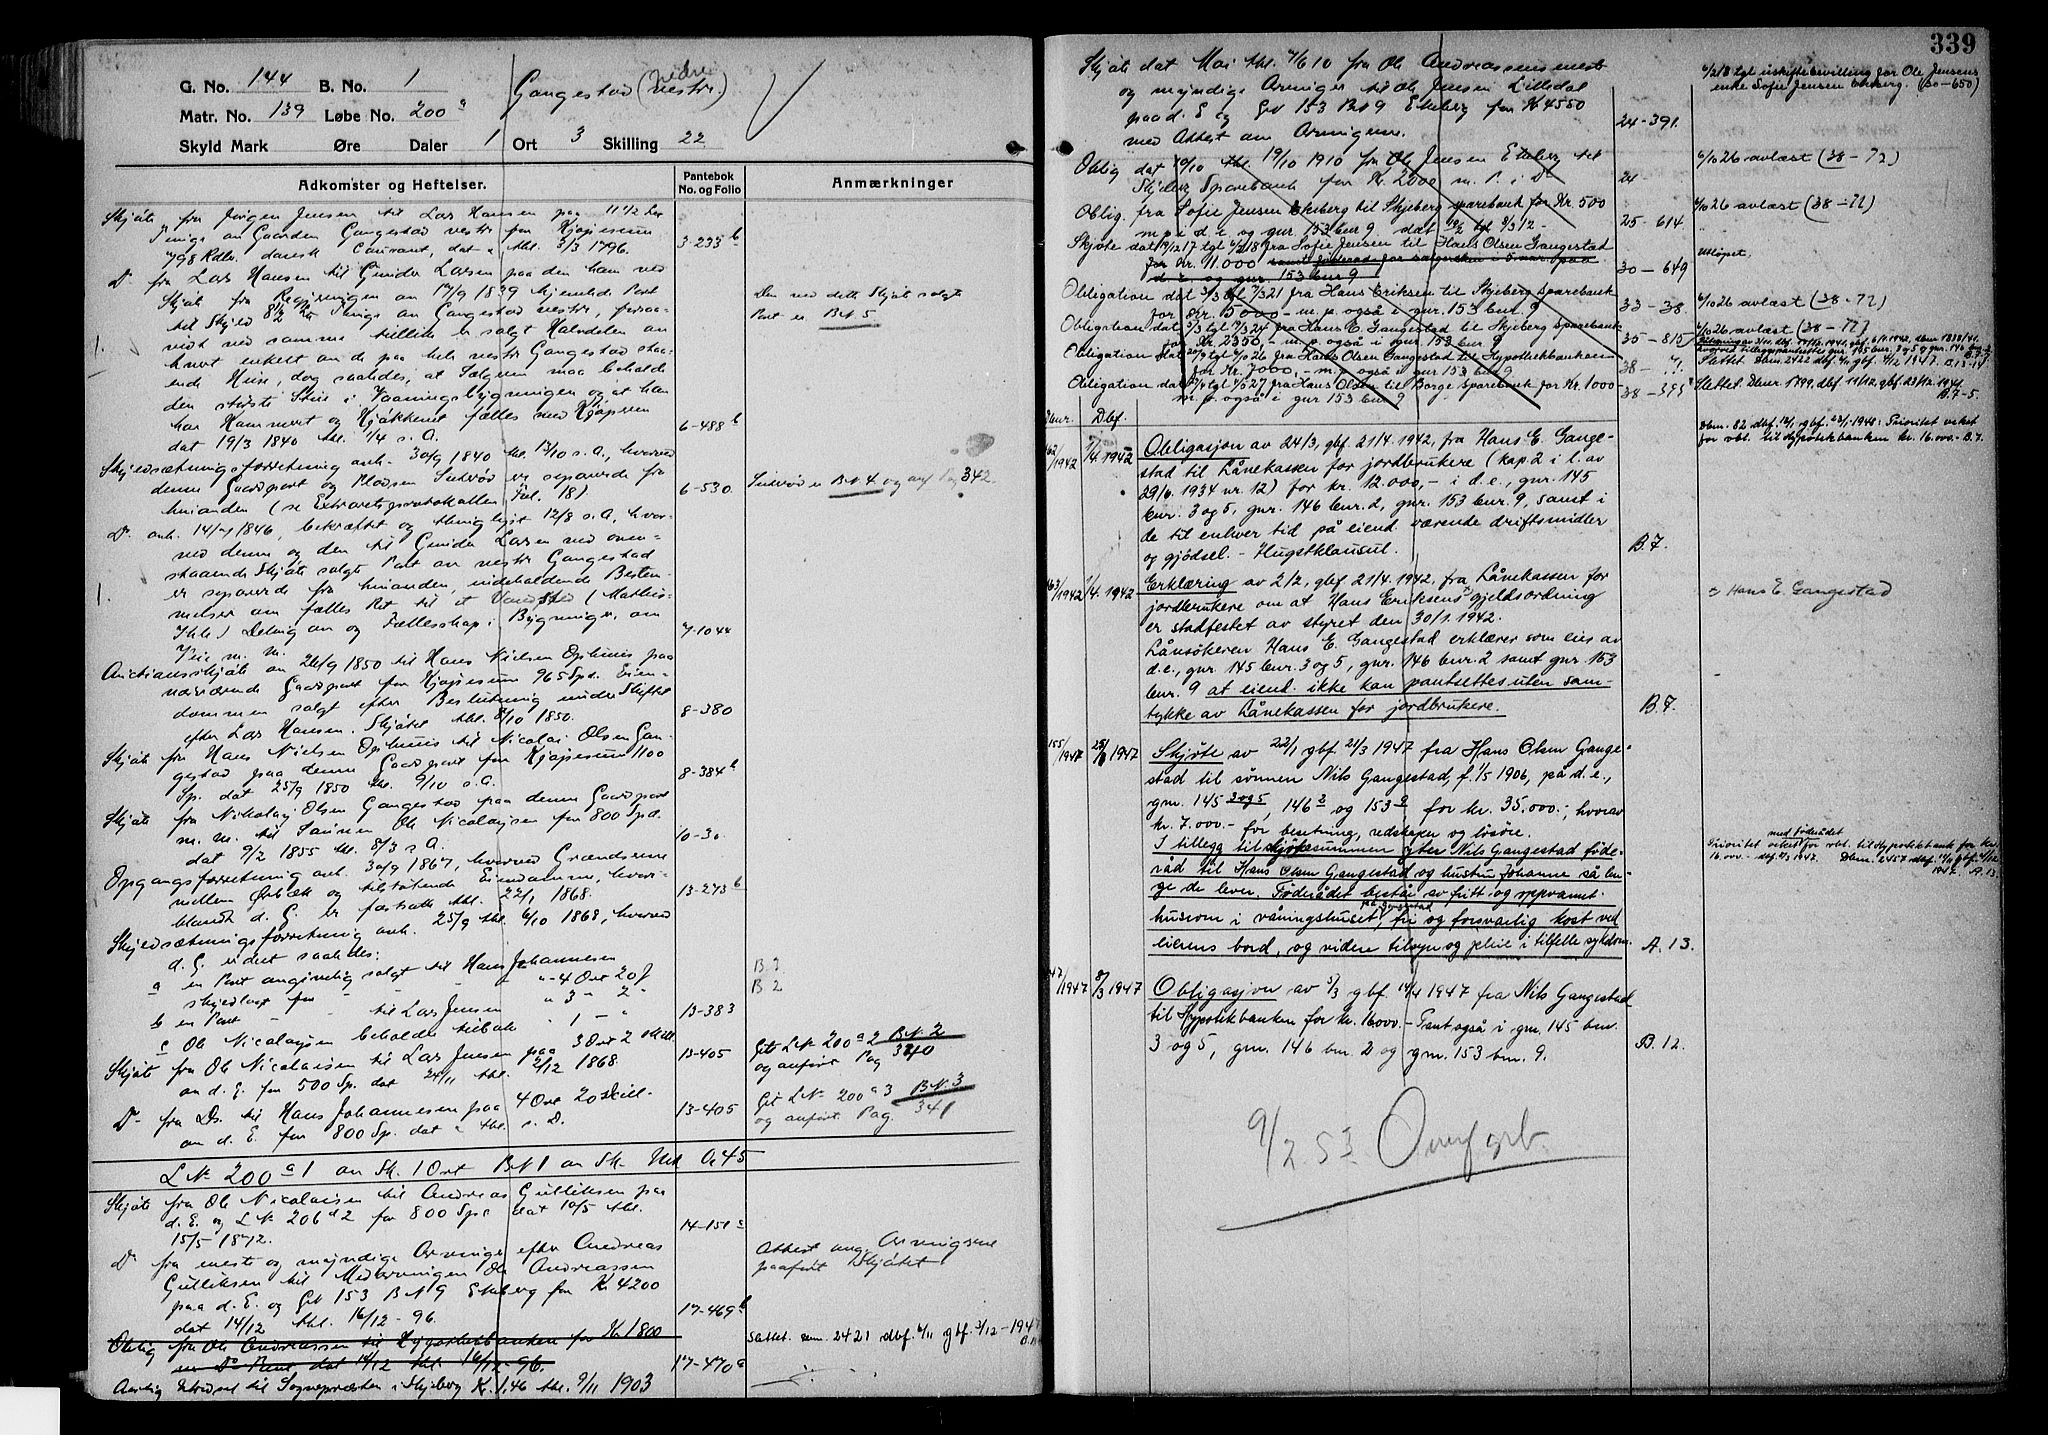 G. No. 144 B. No. 1 Gangestad (nedre vestr.)
Matr. No. 139 Løbe No. 200 a
Skyld Mark Øre Daler 1 Ort 3 Skilling 22
Adkomster og Heftelser. Pantebok No. og Folio Anmærkninger
Skjøte fra Jørgen Jensen til Lars Hansen paa 11 1/2
i vestr for Kjøpesum
798 Rdlr. dansk Courant, dat. thl. 3/3 1796. 3-235 b
Do fra Lars Hansen til Gunder Larsen paa den ham ved
Skjøte fra Regjeringen av 17/9 1839 hjemlede Part Den ved dette Skjøte solgte
til Skyld 8 1/2 av Gangestad vestr, Part er B.N. 5
vidt ved samme tillike er solgt Halvdelen av
hvert enkelt av de paa hele vestr Gangestad staa-
ende Huse, dog saaledes, at Sælgeren maa beholde
den største Stue i Vaaningsbygningen og at han
har Kammert og Kjøkkenet fælles med Kjøperen
dat 19/3 1840 thl. 1/4 s. A. 6-488 b
Skyldsætningsforretning avh. 30/9 1840 thl. 13/10 s. A., hvorved
denne Gaardpart og Pladsen er separerede fra
hinanden (se Extraretsprotokollen Fol. 18). 6-530. er B.N. 4 og anf Pag 342.
Do avh. 14/7 1846, bekræftet og thinglyst 12/8 s. A., hvor-
ved denne og den til Gunder Larsen ved oven-
staaende Skjøte solgte Part av vestr Gangestad
er separerede fra hinanden, indeholdende Bestem-
melser om fælles Ret til et Vandsted (Mathis-
Deling av og Fællesskap i Bygninger, om
Veie m. m. 7-1044
Auctionsskjøte av 26/9 1850 til Hans Nielsen Ophuus paa
nærværende Gaardpart for Kjøpesum 965 Spd. Eien-
dommen solgt efter Beslutning under Skiftet
efter Lars Hansen. Skjøtet thl. 8/10 1850. 8-380
Skjøte fra Hans Nielsen Ophuus til Nicolai Olsen Gan-
gestad paa denne Gaardpart for Kjøpesum 1100
Sp. dat 25/9 1850 thl. 9/10 s. A. 8-384 b
Skjøte fra Nikolai Olsen Gangestad paa denne Gaardpart
m. m. til Sønnen Ole Nicolaysen for 800 Spd.
dat 9/2 1855 thl. 8/3 s. A. 10-30
Opgangsforretning avh. 30/9 1867, hvorved Grændserne
mellem Ørbæk og tilstøtende Eiendomme, hvor-
blandt d. G. er fastsatte thl. 22/1 1868. 13-273 b
Skyldsætningsforretning avh. 25/9 thl. 6/10 1868, hvorved
d. G. er delt saaledes:
a en Part angivelig solgt til Hans Johannesen
skyldlagt for - - - 4 Ort 20 B.N. 3
b en Part - - til Lars Jensen 3 - 2 B.N. 2
c Ole Nicolaysen beholdt tilbake 1 - 13-383
Skjøte fra Ole Nicolaisen til Lars Jensen paa 3 Ort 2 Skill.
av d. E. for 500 Sp. dat 24/11 thl. 2/12 1868. 13-405 Git L.N. 200 a 2 B.N. 2
og anført Pag 340
Do fra Ds. til Hans Johannesen paa 4 Ort 20 skill.
av d. E. for 800 Sp. dat thl. s. D. 13-405 Git L.N. 200 a 3 B.N. 3
og anført Pag. 341
L.N. 200 a 1 av Sk. 1 Ort B.N. 1 av Sk. Mk 0.45
Skjøte fra Ole Nicolaisen til Andreas Gulliksen paa
d. E. og L.N. 206 d 2 for 800 Spd dat 10/5 thl.
15/5 1872. 14-151 a
Do fra enest og myndige Arvinger efter Andreas
Gulliksen til Medarvingen Ole Andreassen Attest ang. Arvingerne
paa d. E. og G.N. 153 B.N. 9 Ekeberg for Kr 4200 paaført Skjøtet
dat 14/12 thl. 16/12 - 96. 17-469 b
Oblig fra Ole Andreassen til Hypothekbanken for Kr 1800
m Do Pant dat 14/12 thl. 16/12-96. 17-470 a Slettet. dnr. 2421 dbf. 6/11 gbf. 3/12 - 1947
Aarlig til Sognepresten i Skjeberg Kr. 1,46 thl. 9/11 1903
339
Skjøte dat Mai thl. 7/6 10 fra Ole Andreassens enest
og myndige Arvinger til Ole Jensen Lilledal
paa d. E og Gn 153 B.N. 9 Ekeberg for Kr 4550
med Attest om Arvingerne. 24-391.
6/2 18 tgl uskiftebevilling for Ole Jensens
enke Sofie Jensen Ekeberg. (30-650)
Oblig dat 10/10 thl. 19/10 1910 fra Ole Jensen Ekeberg til
Skjeberg Sparebank for Kr. 2000 m. P. i Do 24 6/10 26 avlæst (38-72)
Oblig. fra Sofie Jensen Ekeberg til Skjeberg sparebank for Kr. 500
m. p. i d. e. og gnr. 153 bnr 9. dat 12/2 tgl 9/3 12- 25-614 6/10 26 avlæst (38-72)
Skjøte dat 17/12 17 tgl 6/2 18 fra Sofie Jensen til Hans Olsen Gangestad
for kr. 11.000 samt føderaad for sælgersken i 5 aar paa
d. e. og gnr. 153 bnr 9 30-649 Utløpet.
Obligation dat 3/3 tgl 7/3 21 fra Hans Eriksen til Skjeberg sparebank
for Kr. 5000 - m. p. også i gnr. 153 bnr. 9. 33-38. 6/10 26 avlæst (38-72)
Obligation dat 3/3 tgl 7/3 24 fra Hans E. Gangestad til Skjeberg sparebank
for Kr. 2350,- m. p. også i gnr. 153 bnr 9 35-815 6/10 26 avlæst (38-72)
Obligation dat tgl 6/10 26 fra Hans Olsen Gangestad til Hypothekbanken
for Kr. 7000,- m. p. også i gnr 153 bnr 9. 38-71. Slettet. Dbnr. 2422 dbf. 6/11 gbf. 3/12 1947. A.13-14
Obligation dat tgl 27 fra Hans Olsen til Borge sparebank for Kr. 1000
m. p. også i gnr 153 bnr 9. 38-395 Slettet. Dbnr. 1799, dbf. 11/12, gbf. 23/12 1941. B.7-5.
Dnr. Dbf.
1942 1942 Obligasjon av 24/3, gbf. 21/4. 1942, fra Hans E. Gange-
stad til Lånekassen for jordbrukere (kap. 2 i l. av
29/6. 1934 nr. 12) for kr. 12.000,- i d. e., gnr. 145
bnr. 3 og 5, gnr. 146 bnr. 2, gnr. 153 bnr. 9, samt i
de til enhver tid på eiend. værende driftsmidler
og gjødsel. - Hugstklausul. B.7.
Dbnr. 82 dbf. gbf. 1948: Prioritet veket
for obl. til Hypotekbanken kr. 16.000.- B. 7.
1942 1942 Erklæring av 2/2, gbf 21/4. 1942, fra Lånekassen for
jordbrukere om at Hans Eriksens gjeldsordning = Hans E. Gangestad
er stadfestet av styret den 30/1. 1942.
Lånsøkeren Hans E. Gangestad erklærer som eier av
d. e., gnr. 145 bnr. 3 og 5, gnr. 146 bnr. 2 samt gnr. 153
bnr. 9 at eiend. ikke kan pantsettes uten sam-
tykke av Lånekassen for jordbrukere. B.7.
155/1947 1947 Skjøte av 22/1 gbf 21/3 1947 fra Hans Olsen Gange-
stad til sønnen Nils Gangestad, f. 1/5 1906, på d. e.,
gnr. 145 3 og 5, 146 2 og 153 9 for kr. 35.000.-; hvorav
kr. 7.000.- for besetning, redskaper og løsøre.
I tillegg til skjøtesummen yter Nils Gangestad føde-
råd til Hans Olsen Gangestad og hustru Johanne så len-
ge de lever. Føderådet består av fritt og oppvarmet
husrom i våningshuset på Gangestad, fri og forsvarlig kost ved
eierens bord, og videre tilsyn og pleie i tilfelle sykdom. A. 13.
med føderådet
Prioritet veket for obl. til Hypotekbank for kr.
16.000.- 1947. Dbnr. 2457 1947. A.13.
1947 8/3 1947 Obligasjon av 5/3 gbf. 14/4 1947 fra Nils Gangestad
til Hypotekbanken for kr. 16000.- Pant også i gnr. 145 bnr.
3 og 5, gnr. 146 bnr. 2 og gnr. 153 bnr. 9. B.12.
9/2 53. Overf grb.